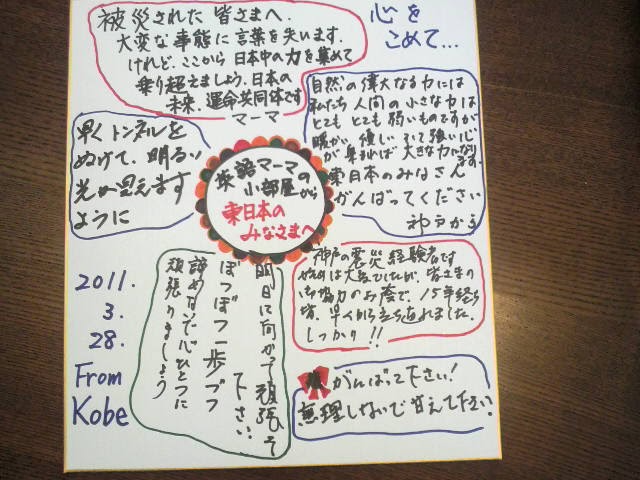 被災された皆さまへ.
大変な事態に言葉を失います.
けれど、ここから日本中の力を集めて
乗り超えましょう.日本の
未来、運命共同体です
マーマ
心を
こめて...
自然の偉大なる力には
私たち人間の小さな力は
とてもとても弱いものですが
暖かい優しいそして強い心
が集まれば大きな力になります.
東日本のみなさん
がんばってください
神戸から
早くトンネルを
ぬけて、明るい
光が見えます
ように
英語マーマの
小部屋から
東日本の
みなさまへ
神戸の震災経験者です
は大変でしたが、皆さまの
協力のお蔭で、15年経ち
早くから立ち直れました.
しっかり!!
明日に向かって頑張って
下さい.
ぼつぼつ一歩ずつ
諦めないで心ひとつに
頑張りましょう
2011.
3.
28.
From
Kobe
がんばって下さい!
無理しないで甘えて下さい.